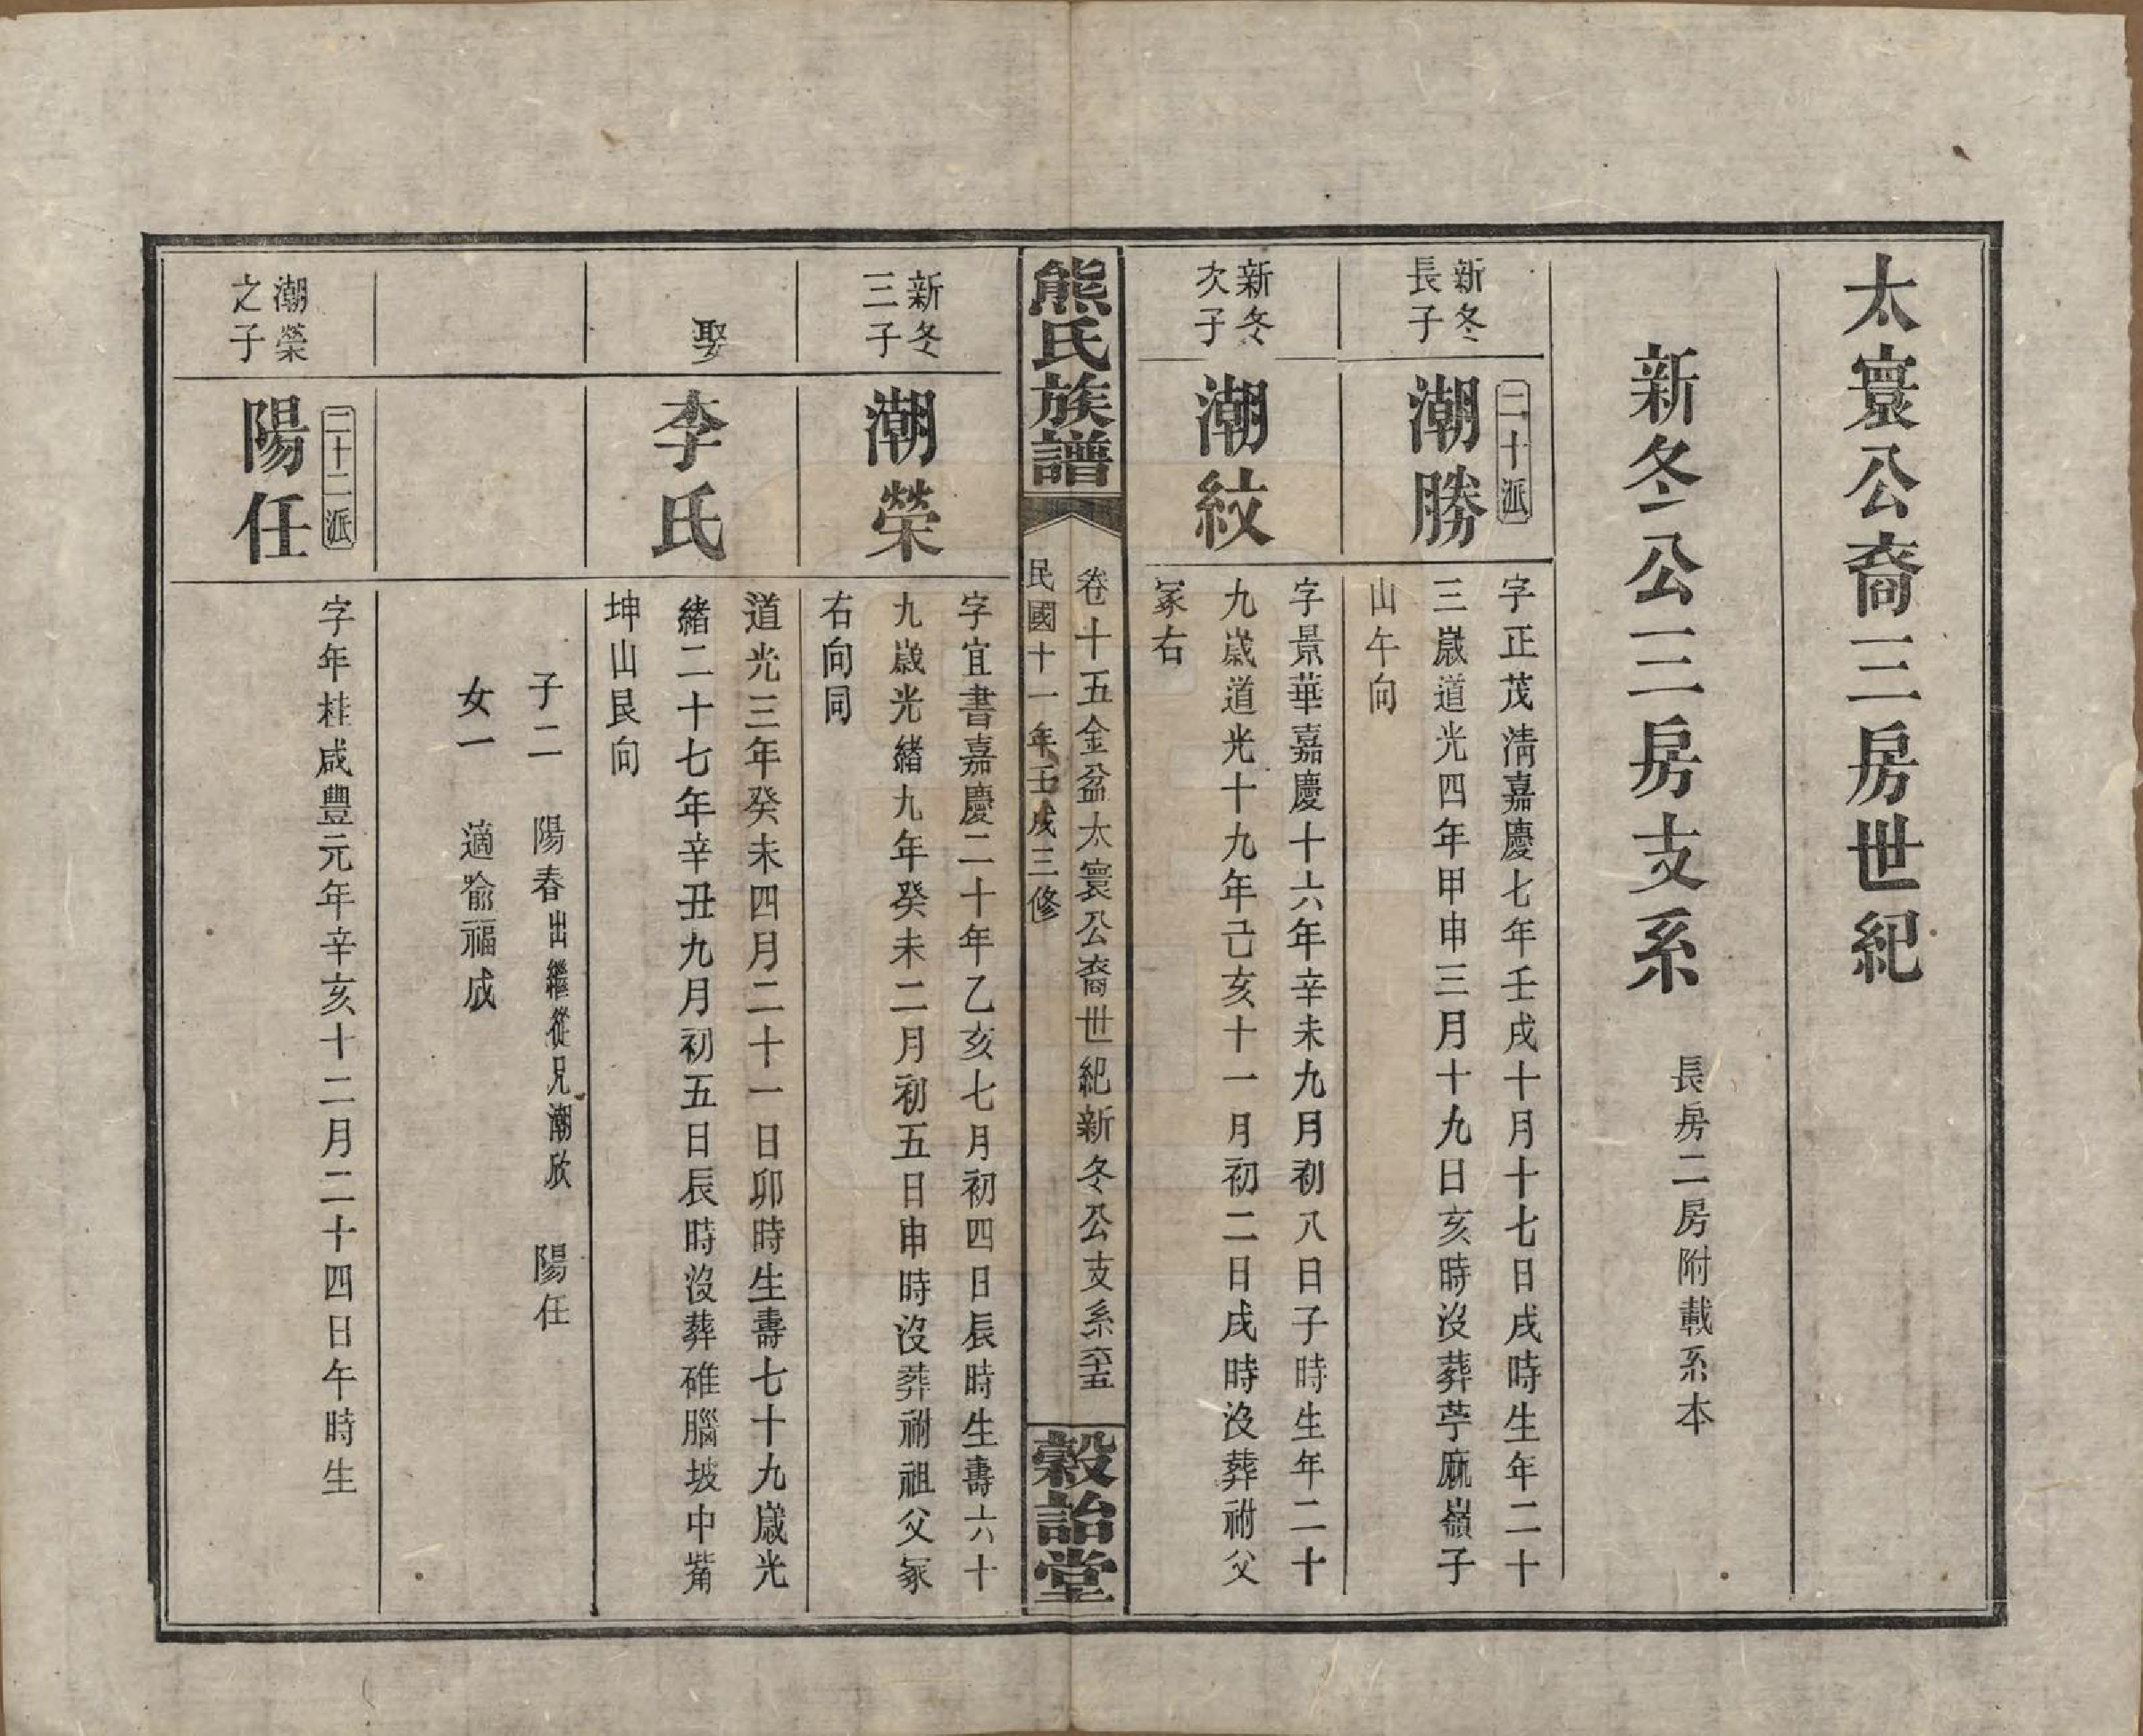 太寰公裔三房世紀
新冬公三房支系
長房二房附載系本
新冬
長子
二十派
潮勝
字正茂清嘉慶七年壬戌十月十七日戌時生年二十
三歲道光四年甲申三月十九日亥時沒葬苧麻嶺子
山午向
新冬
次子
潮紋
字景華嘉慶十六年辛未九月初八日子時生年二十
九歲道光十九年己亥十一月初二日戌時沒葬祔父
冢右
熊氏族譜
卷十五金盆太寰公裔世紀新冬公支系
民國十一年壬戌三修
穀詒堂
新冬
三子
潮榮
字宜書嘉慶二十年乙亥七月初四日辰時生壽六十
九歲光緒九年癸未二月初五日申時沒葬祔祖父冢
右向同
娶
李氏
道光三年癸未四月二十一日卯時生壽七十九歲光
緒二十七年辛丑九月初五日辰時沒葬碓腦坡中觜
坤山艮向
子二 陽春出繼從兄潮欣 陽任
女一 適喻福成
潮榮
之子
二十二派
陽任
字年桂咸豐元年辛亥十二月二十四日午時生